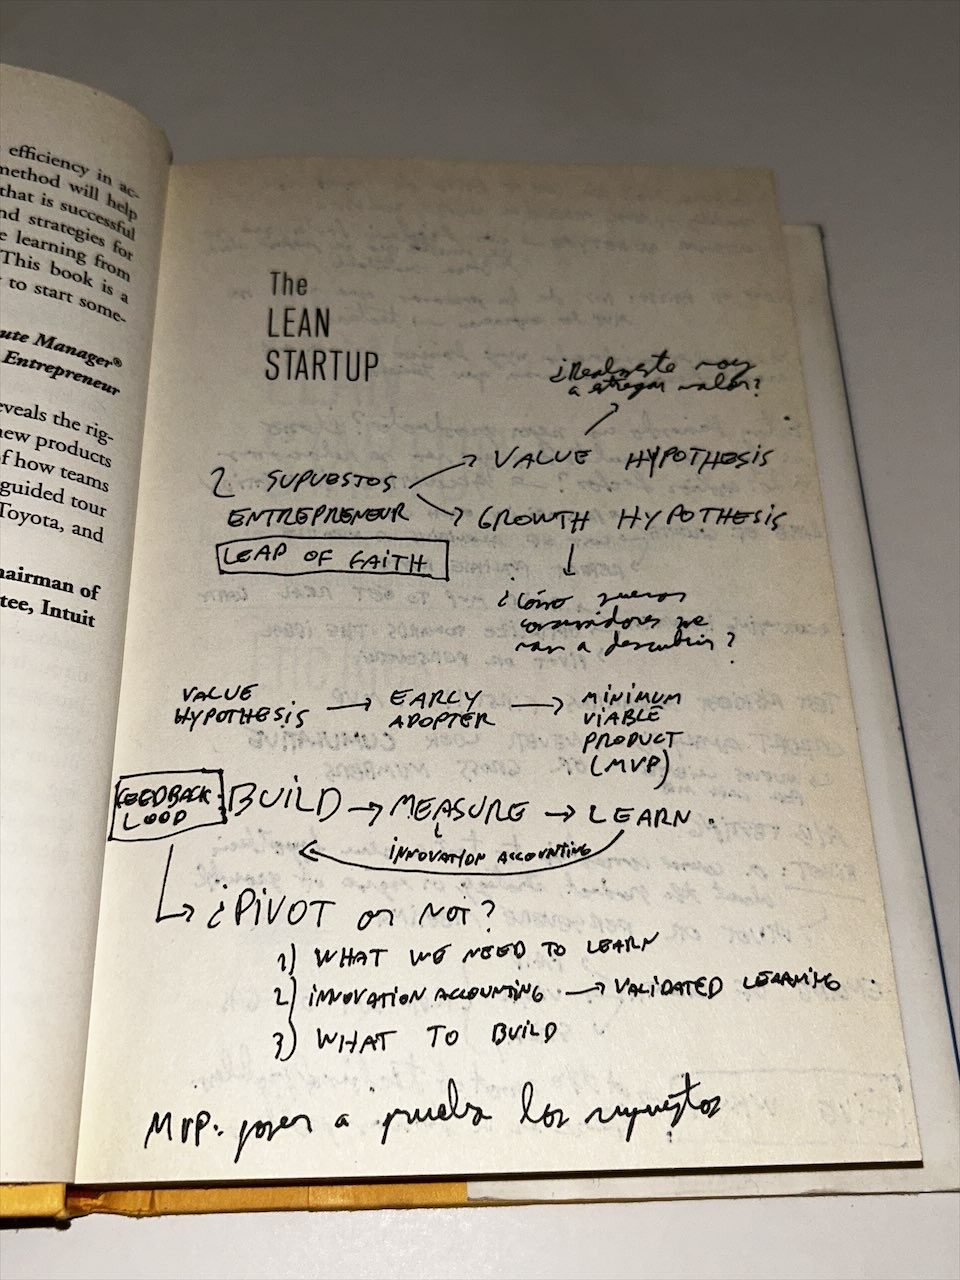 efficiency in ac-
method will help
that is successful
nd strategies for
e learning from
This book is a
to start some-
ute Manager®
Entrepreneur
eveals the rig-
new products
f how teams
guided tour
Toyota, and
hairman of
tee, Intuit
The
LEAN
STARTUP
¿Realmente voy
a entregar valor?
2 SUPUESTOS → VALUE HYPOTHESIS
ENTREPRENEUR → GROWTH HYPOTHESIS
LEAP OF FAITH
¿Cómo nuevos
consumidores me
van a descubrir?
VALUE HYPOTHESIS → EARLY ADOPTER → MINIMUM
VIABLE
PRODUCT
(MVP)
FEEDBACK
LOOP
BUILD → MEASURE → LEARN
INNOVATION ACCOUNTING
¿PIVOT or NOT?
1) WHAT WE NEED TO LEARN
2) INNOVATION ACCOUNTING → VALIDATED LEARNING
3) WHAT TO BUILD
MVP: poner a prueba los supuestos